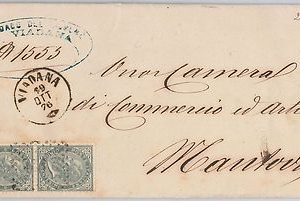 VIADANA
N 1553
VIADANA
19
OTT
76
Onor Camera
di Commercio ed Arti
Mantova